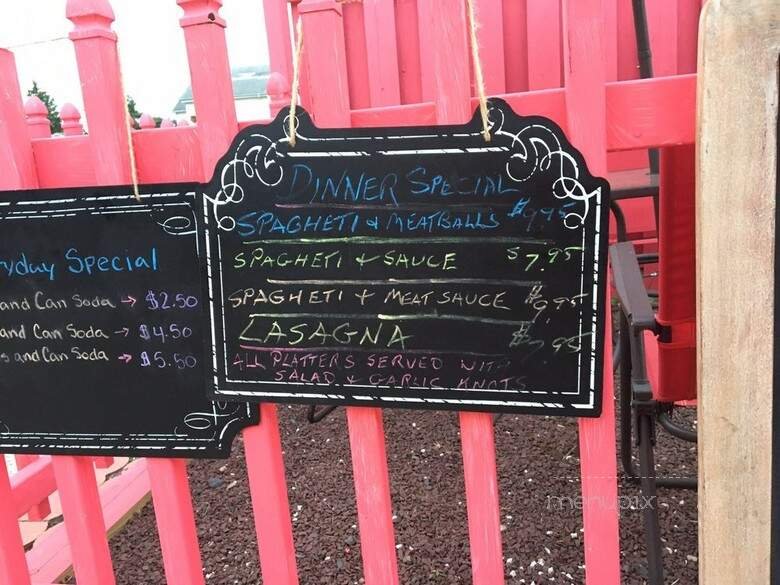 yday Special
and Can Soda → $2.50
and Can Soda → $4.50
s and Can Soda → $5.50
DINNER SPECIAL
SPAGHETI & MEATBALLS $9.95
SPAGHETI & SAUCE $7.95
SPAGHETI + MEAT SAUCE $9.95
LASAGNA
ALL PLATTERS SERVED WITH
SALAD & GARLIC KNOTS
menupix